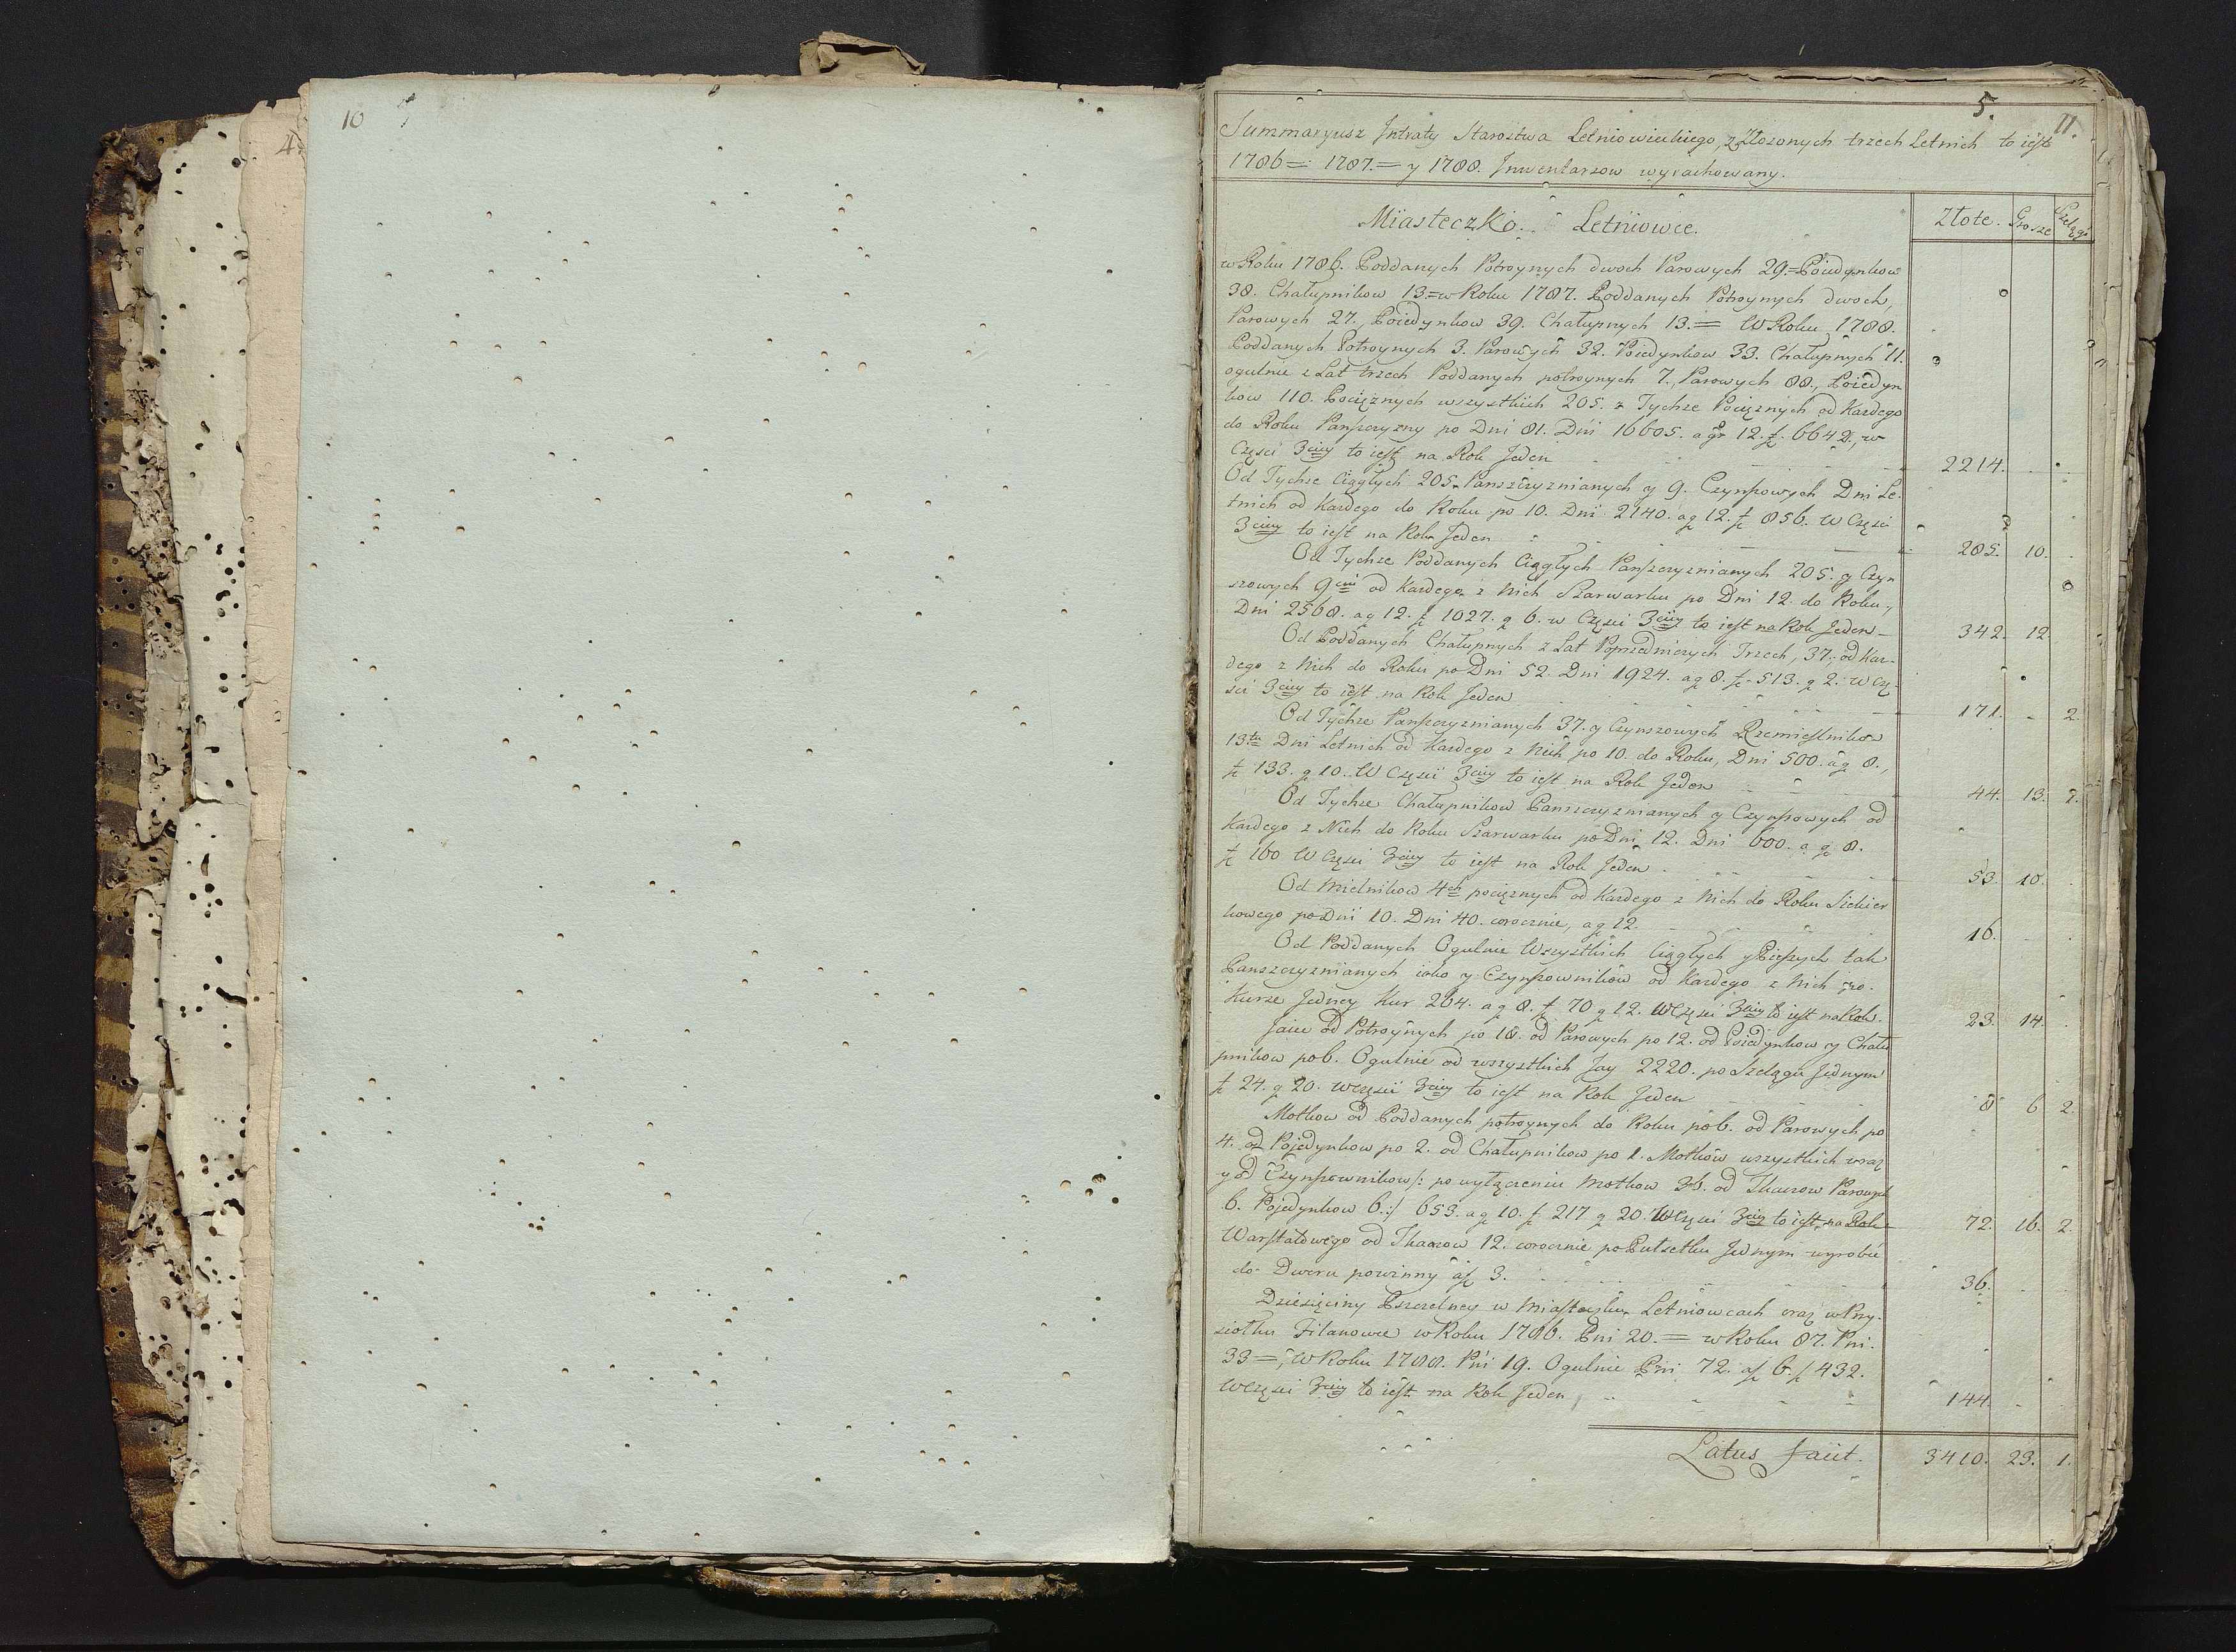 10
4.
5.
11.
Summaryusz Intraty Starostwa Letniowieckiego, z Złozonych trzech Letnich to iest
1786 = 1787. = y 1788. Inwentarzow wyrachowany.
Miasteczko Letniowce.
Złote. Grosze Szelągi
w Roku 1786. Poddanych Potroynych dwoch Parowych 29. = Poiedynkow
38. Chałupnikow 13. = w Roku 1787. Poddanych Potroynych dwoch,
Parowych 27. Poiedynkow 39. Chałupnych 13. = W Roku 1788.
Poddanych Potroynych 3. Parowych 32. Poiedynkow 33. Chałupnych 11.
ogulnie z Lat trzech Poddanych potroynych 7., Parowych 88., Poiedyn
kow 110. Pociężnych wszystkich 205. z Tychze Pociężnych od Kazdego
do Roku Panszczyzny po Dni 81. Dni 16605. a gr 12. f. 6642., w
Częsci 3ciey to iest na Rok Jeden 2214.
Od Tychze Ciągłych 205. Panszczyznianych y 9. Czynszowych Dni Le-
tnich od Kazdego do Roku po 10. Dni 2140. a g 12. f 856. w Częsci
3ciey to iest na Rok Jeden 285. 10.
Od Tychze Poddanych Ciągłych Panszczyznianych 205. y Czyn
szowych 9ciu od Kazdego z Nich Szarwarku po Dni 12. do Roku,
Dni 2568. a g 12. f 1027. g 6. w Częsci 3ciey to iest na Rok Jeden 342. 12.
Od Poddanych Chałupnych z Lat Poprzedniczych Trzech, 37., od Kaz-
dego z Nich do Roku po Dni 52. Dni 1924. a g 8. f 513. g 2. w Czę-
sci 3ciey to iest na Rok Jeden 171. - 2.
Od Tychze Panszczyznianych 37. y Czynszowych Rzemieslnikow
13tu Dni Letnich od Kazdego z Nich po 10. do Roku, Dni 500. a g 8.,
f 133. g 10. W Częsci 3ciey to iest na Rok Jeden 44. 13. 1.
Od Tychze Chałupnikow Panszczyznianych y Czynszowych od
Kazdego z Nich do Roku Szarwarku po Dni 12. Dni 600. a g 8.
f 160 W Częsci 3ciey to iest na Rok Jeden 53. 10.
Od Mielnikow 4ch pociężnych od Kazdego z Nich do Roku Siekier
kowego po Dni 10. Dni 40. corocznie, a g 12. 16.
Od Poddanych Ogulnie Wszystkich Ciągłych y Pieszych tak
Panszczyznianych iako y Czynszownikow od Kazdego z Nich po
Kurze Jedney Kur 264. a g 8. f 70 g 12. W Częsci 3ciey to iest na Rok 23. 14.
Jaiec od Potroynych po 18. od Parowych po 12. od Poiedynkow y Chału
pnikow po 6. Ogulnie od wszystkich Jay 2220. po Szelągu Jednym
f 24. g 20. w Częsci 3ciey to iest na Rok Jeden 8 6 2
Motkow od Poddanych potroynych do Roku po 6. od Parowych po
4. od Pojedynkow po 2. od Chałupnikow po 1. Motkow wszystkich wraz
y od Czynszownikow /: po wyłączeniu Motkow 36. od Tkaczow Parowych
6. Pojedynkow 6. :/ 653. a g 10. f 217 g 20. W Częsci 3ciey to iest na Rok 72. 16. 2.
Warstatowego od Tkaczow 12. corocznie po Pułsetku Jednym wyrobić
do Dworu powinny a f 3. 36.
Dziesięciny Pszczelney w Miasteczku Letniowcach oraz w Przy-
siołku Filanowce w Roku 1786. Pni 20. = w Roku 87. Pni.
33 =, W Roku 1788. Pni 19. Ogulnie Pni 72. a f 6. f 432.
W Częsci 3ciey to iest na Rok Jeden 144.
Latus facit. 3410. 23. 1.